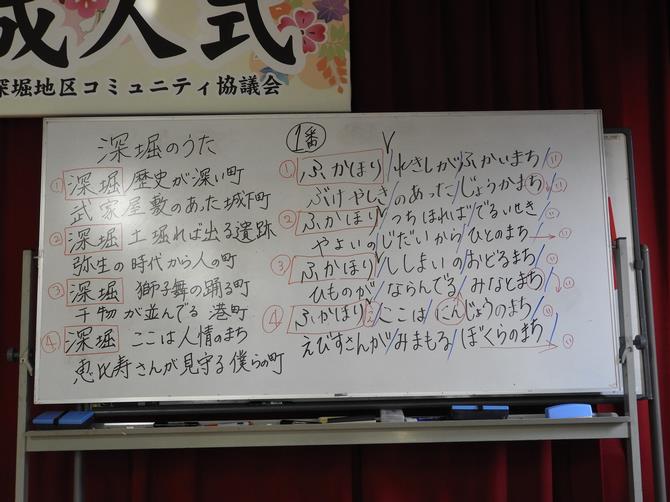 成人式
深堀地区コミュニティ協議会
深堀のうた
①深堀 歴史が深い町
武家屋敷のあった城下町
②深堀 土堀れば出る遺跡
弥生の時代から人の町
③深堀 獅子舞の踊る町
干物が並んでる港町
④深堀 ここは人情のまち
恵比寿さんが見守る僕らの町
1番
①ふかほり/れきしが/ふかいまち/
ぶけやしき/のあった/じょうかまち/
②ふかほり/つちほれば/でるいせき/
やよいの/じだいから/ひとのまち/
③ふかほり/ししまいの/おどるまち/
ひものが/ならんでる/みなとまち/
④ふかほり/ここは/にんじょうのまち/
えびすさんが/みまもる/ぼくらのまち/